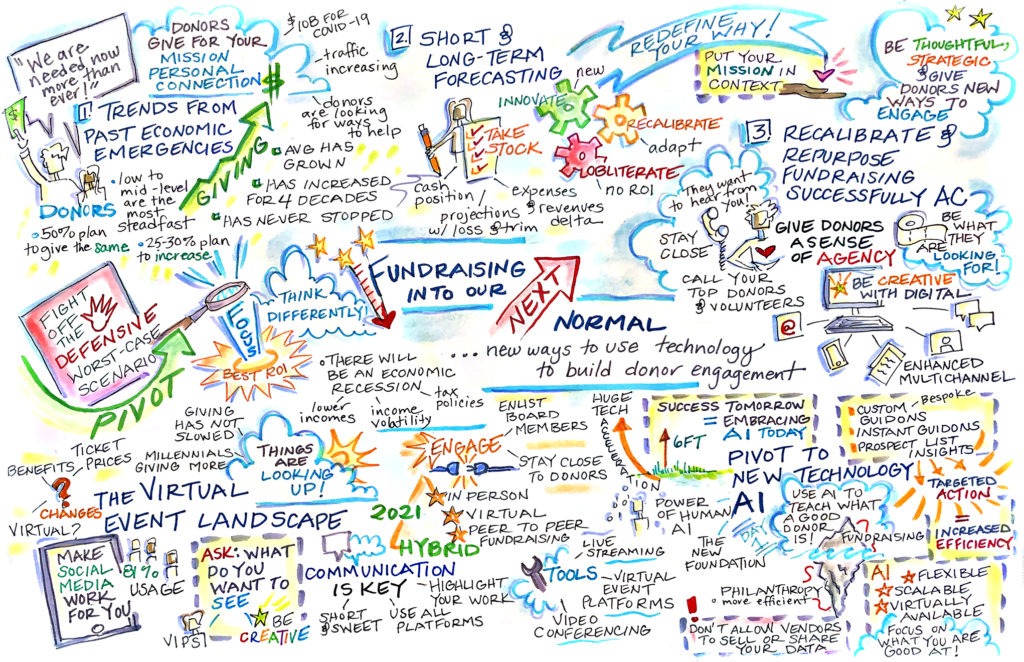 "We are
needed now
more than
ever!"
DONORS
GIVE FOR YOUR
MISSION
PERSONAL
CONNECTION
$
$
$10B FOR
COVID-19
traffic
increasing
donors
are looking
for ways
to help
1.
TRENDS FROM
PAST ECONOMIC
EMERGENCIES
GIVING
AVG HAS
GROWN
HAS INCREASED
FOR 4 DECADES
HAS NEVER STOPPED
DONORS
• low to
mid-level
are the
most
steadfast
• 50% plan
to give the same
• 25-30% plan
to increase
2.
SHORT &
LONG-TERM
FORECASTING
TAKE
STOCK
cash
position/
projections
w/loss & trim
expenses
& revenues
delta
new
INNOVATE
RECALIBRATE
adapt
LOBLITERATE
no ROI
REDEFINE
YOUR WHY!
PUT YOUR
MISSION IN
CONTEXT
BE THOUGHTFUL,
STRATEGIC
& GIVE
DONORS NEW
WAYS TO
ENGAGE
3.
RECALIBRATE &
REPURPOSE
FUNDRAISING
SUCCESSFULLY AC
They want
to hear from
you!
STAY
CLOSE
CALL YOUR
TOP DONORS
& VOLUNTEERS
GIVE DONORS
A SENSE
OF AGENCY
BE
WHAT
THEY
ARE
LOOKING
FOR!
BE CREATIVE
WITH DIGITAL
@
ENHANCED
MULTICHANNEL
FIGHT
OFF
THE
DEFENSIVE
WORST-CASE
SCENARIO
PIVOT
FOCUS
BEST ROI
THINK
DIFFERENTLY!
FUNDRAISING
INTO OUR
NEXT
NORMAL
... new ways to use technology
to build donor engagement
• THERE WILL
BE AN ECONOMIC
RECESSION
lower
incomes
income
volatility
tax
policies
GIVING
HAS NOT
SLOWED
MILLENNIALS
GIVING MORE
THINGS ARE
LOOKING
UP!
ENGAGE
ENLIST
BOARD
MEMBERS
STAY CLOSE
TO DONORS
BENEFITS
TICKET
PRICES
?
CHANGES
VIRTUAL?
THE VIRTUAL
EVENT LANDSCAPE
2021
HYBRID
IN PERSON
VIRTUAL
PEER TO PEER
FUNDRAISING
MAKE
SOCIAL
MEDIA
WORK
FOR YOU
81%
USAGE
VIPS!
ASK: WHAT
DO YOU
WANT TO
SEE
BE
CREATIVE
COMMUNICATION
IS KEY
SHORT
& SWEET
USE ALL
PLATFORMS
HIGHLIGHT
YOUR WORK
TOOLS
LIVE
STREAMING
VIRTUAL
EVENT
PLATFORMS
VIDEO
CONFERENCING
HUGE
TECH
ACCELERATION
SUCCESS TOMORROW
= EMBRACING
AI TODAY
6FT
PIVOT TO
NEW TECHNOLOGY
AI
POWER OF
HUMAN
AI
THE
NEW
FOUNDATION
DATA
USE AI TO
TEACH WHAT
A GOOD
DONOR
IS!
FUNDRAISING
PHILANTHROPY
• more efficient
!
DON'T ALLOW VENDORS
TO SELL OR SHARE
YOUR DATA
CUSTOM
GUIDONS
Bespoke
INSTANT GUIDONS
PROSPECT LIST
INSIGHTS
TARGETED
ACTION
=
INCREASED
EFFICIENCY
AI
FLEXIBLE
SCALABLE
VIRTUALLY
AVAILABLE
FOCUS ON
WHAT YOU ARE
GOOD AT!